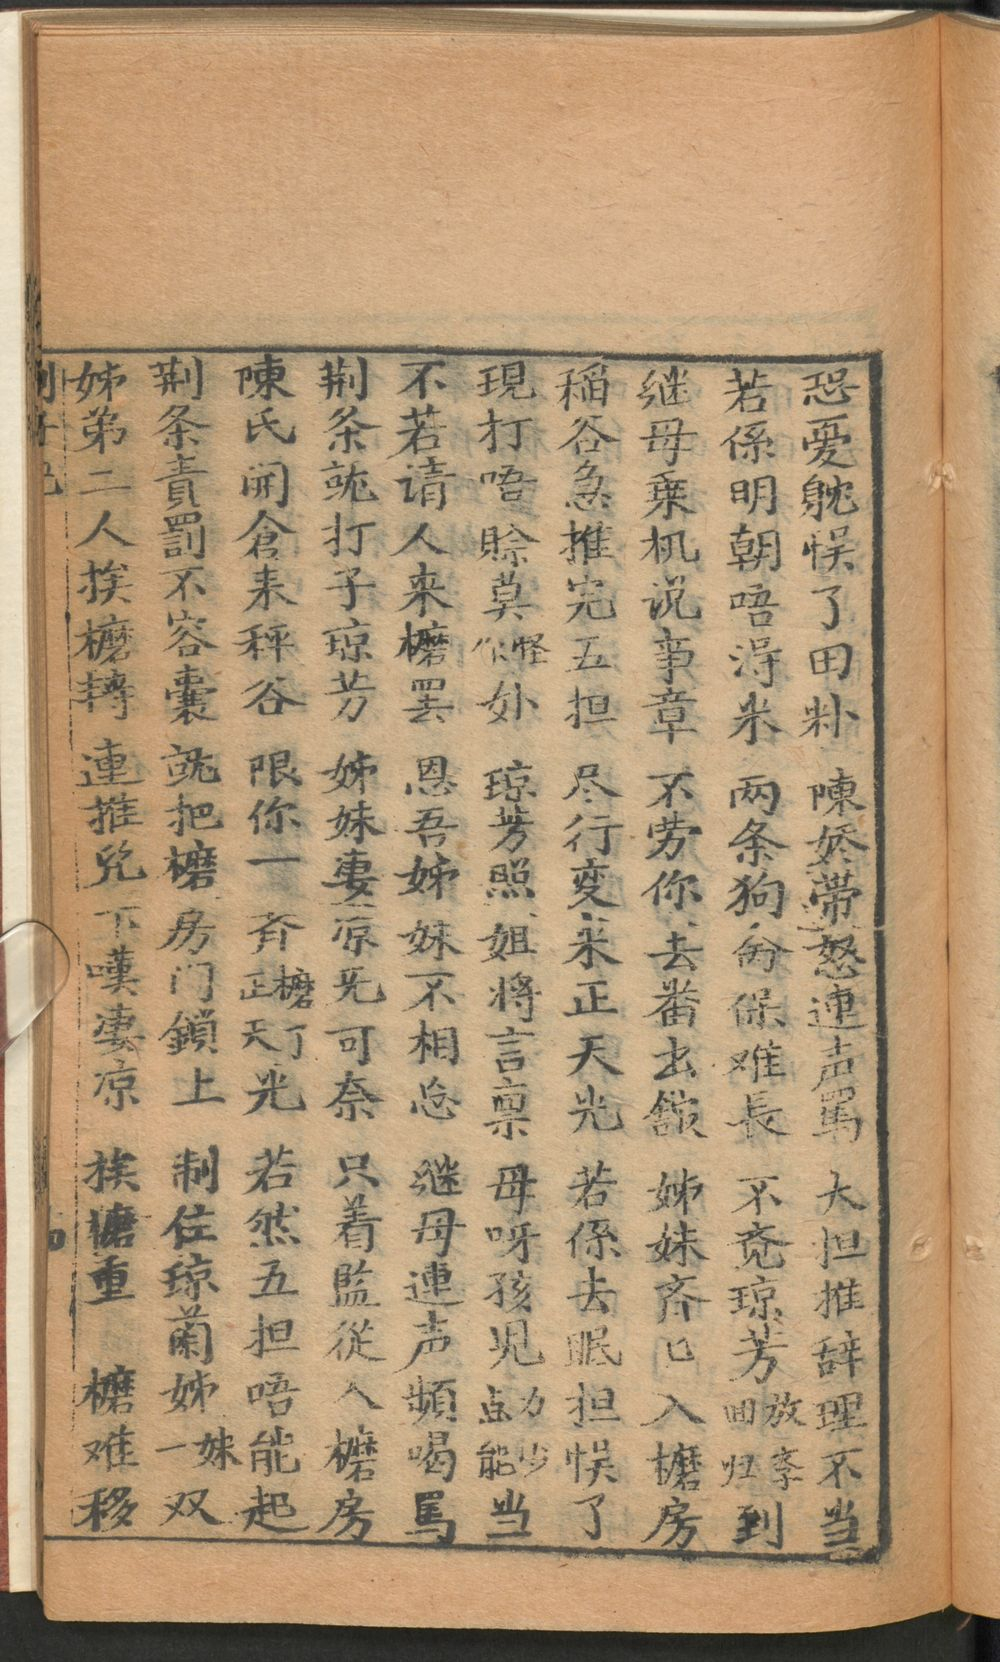 恐憂躭悞了田料　陳娇带怒連声罵　大怛推辞理不当
若係明朝唔得米　两条狗命保难長　不觉琼芳放李回归到
继母乗机说事章　不劳你去番出館　姊妹齐已入櫓房
稲谷急推完五担　尽行变米正天光　若係去眠担悞了
現打唔賒莫怪你外　琼芳照姐将言禀　母呀孩児力少点能当
不若请人来櫓罢　恩吾姊妹不相怂　继母連声頻喝罵
荆条就打子琼芳　姊妹凄凉无可奈　只着監從入櫓房
陳氏開倉来秤谷　限你一斉櫓了正天光　若然五担唔能起
荆条責罰不容囊　就把櫓房门鎖上　制住琼蘭姊妹一双
姊弟二人挨櫓轉　連推児下嘆凄凉　挨櫓重　櫓难移